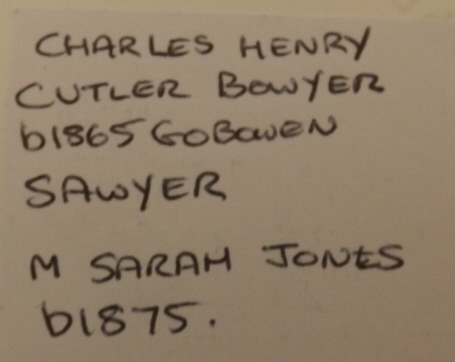 CHARLES HENRY
CUTLER BOWYER
b1865 GOBOWEN
SAWYER
M SARAH JONES
b1875.